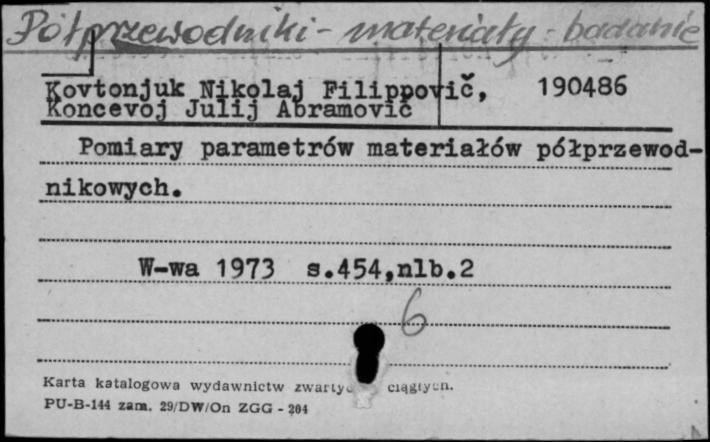 Półprzewodniki - materiały - badanie
Kovtonjuk Nikolaj Filippovič, 190486
Koncevoj Julij Abramovič
Pomiary parametrów materiałów półprzewod-
nikowych.
W-wa 1973 s.454,nlb.2
6
Karta katalogowa wydawnictw ciągłych.
PU-B-144 zam. 29/DW/On ZGG - 204